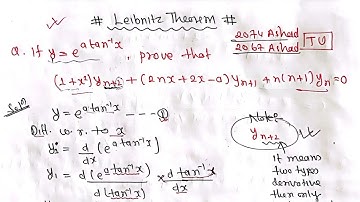 # Leibnitz Theorem #
2074 Ashad
2067 Ashad
TU
Q. If y = e^{a tan⁻¹x}, prove that
(1+x²)y_{n+2} + (2nx+2x-a)y_{n+1} + n(n+1)y_n = 0
Solⁿ
y = e^{a tan⁻¹x} ---- ①
Diff. w. r. to x
y₁ = d/dx (e^{a tan⁻¹x})
y₁ = d(e^{a tan⁻¹x})/d(tan⁻¹x) × d tan⁻¹x/dx
Note
y_{n+2}
It means
two types
derivative
then only